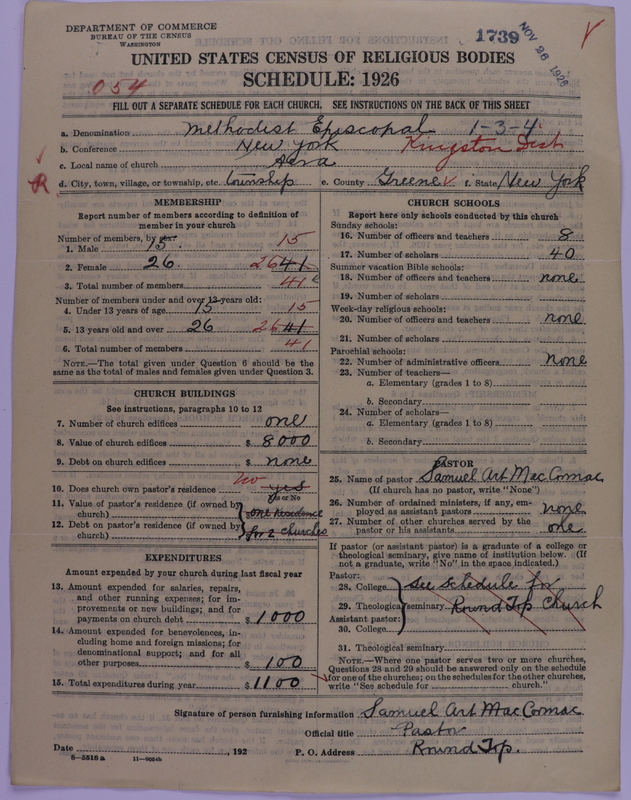 DEPARTMENT OF COMMERCE
BUREAU OF THE CENSUS
WASHINGTON
1739
NOV 26 1926
V
UNITED STATES CENSUS OF RELIGIOUS BODIES
SCHEDULE: 1926
054
FILL OUT A SEPARATE SCHEDULE FOR EACH CHURCH. SEE INSTRUCTIONS ON THE BACK OF THIS SHEET
a. Denomination Methodist Episcopal 1-3-4
b. Conference New York Kingston Dist
c. Local name of church Acra
R d. City, town, village, or township, etc. township e. County Greene f. State New York
MEMBERSHIP
Report number of members according to definition of
member in your church
Number of members, by sex:
1. Male 15. 15
2. Female 26. 26 41
3. Total number of members 41
Number of members under and over 13 years old:
4. Under 13 years of age 15 15
5. 13 years old and over 26 26 41
6. Total number of members 41
NOTE.—The total given under Question 6 should be the
same as the total of males and females given under Question 3.
CHURCH BUILDINGS
See instructions, paragraphs 10 to 12
7. Number of church edifices one
8. Value of church edifices $ 8000
9. Debt on church edifices $ none
10. Does church own pastor's residence no yes
Yes or No
11. Value of pastor's residence (if owned by
church) $ one residence
12. Debt on pastor's residence (if owned by
church) $ for 2 churches
EXPENDITURES
Amount expended by your church during last fiscal year
13. Amount expended for salaries, repairs,
and other running expenses; for im-
provements or new buildings; and for
payments on church debt $ 1000
14. Amount expended for benevolences, in-
cluding home and foreign missions; for
denominational support; and for all
other purposes $ 100
15. Total expenditures during year $ 1100
CHURCH SCHOOLS
Report here only schools conducted by this church
Sunday schools:
16. Number of officers and teachers 8
17. Number of scholars 40
Summer vacation Bible schools:
18. Number of officers and teachers none
19. Number of scholars
Week-day religious schools:
20. Number of officers and teachers none
21. Number of scholars
Parochial schools:
22. Number of administrative officers none
23. Number of teachers—
a. Elementary (grades 1 to 8)
b. Secondary
24. Number of scholars—
a. Elementary (grades 1 to 8)
b. Secondary
PASTOR
25. Name of pastor Samuel Art MacCormac
(If church has no pastor, write "None")
26. Number of ordained ministers, if any, em-
ployed as assistant pastors none
27. Number of other churches served by the
pastor or his assistants one
If pastor (or assistant pastor) is a graduate of a college or
theological seminary, give name of institution below. (If
not a graduate, write "No" in the space indicated.)
Pastor:
28. College See schedule for
29. Theological seminary Round Top Church
Assistant pastor:
30. College
31. Theological seminary
NOTE.—Where one pastor serves two or more churches,
Questions 28 and 29 should be answered only on the schedule
for one of the churches; on the schedules for the other churches,
write "See schedule for church."
Signature of person furnishing information Samuel Art MacCormac
Official title Pastor
Date , 192 P. O. Address Round Top.
8—5518 a 11—9054b